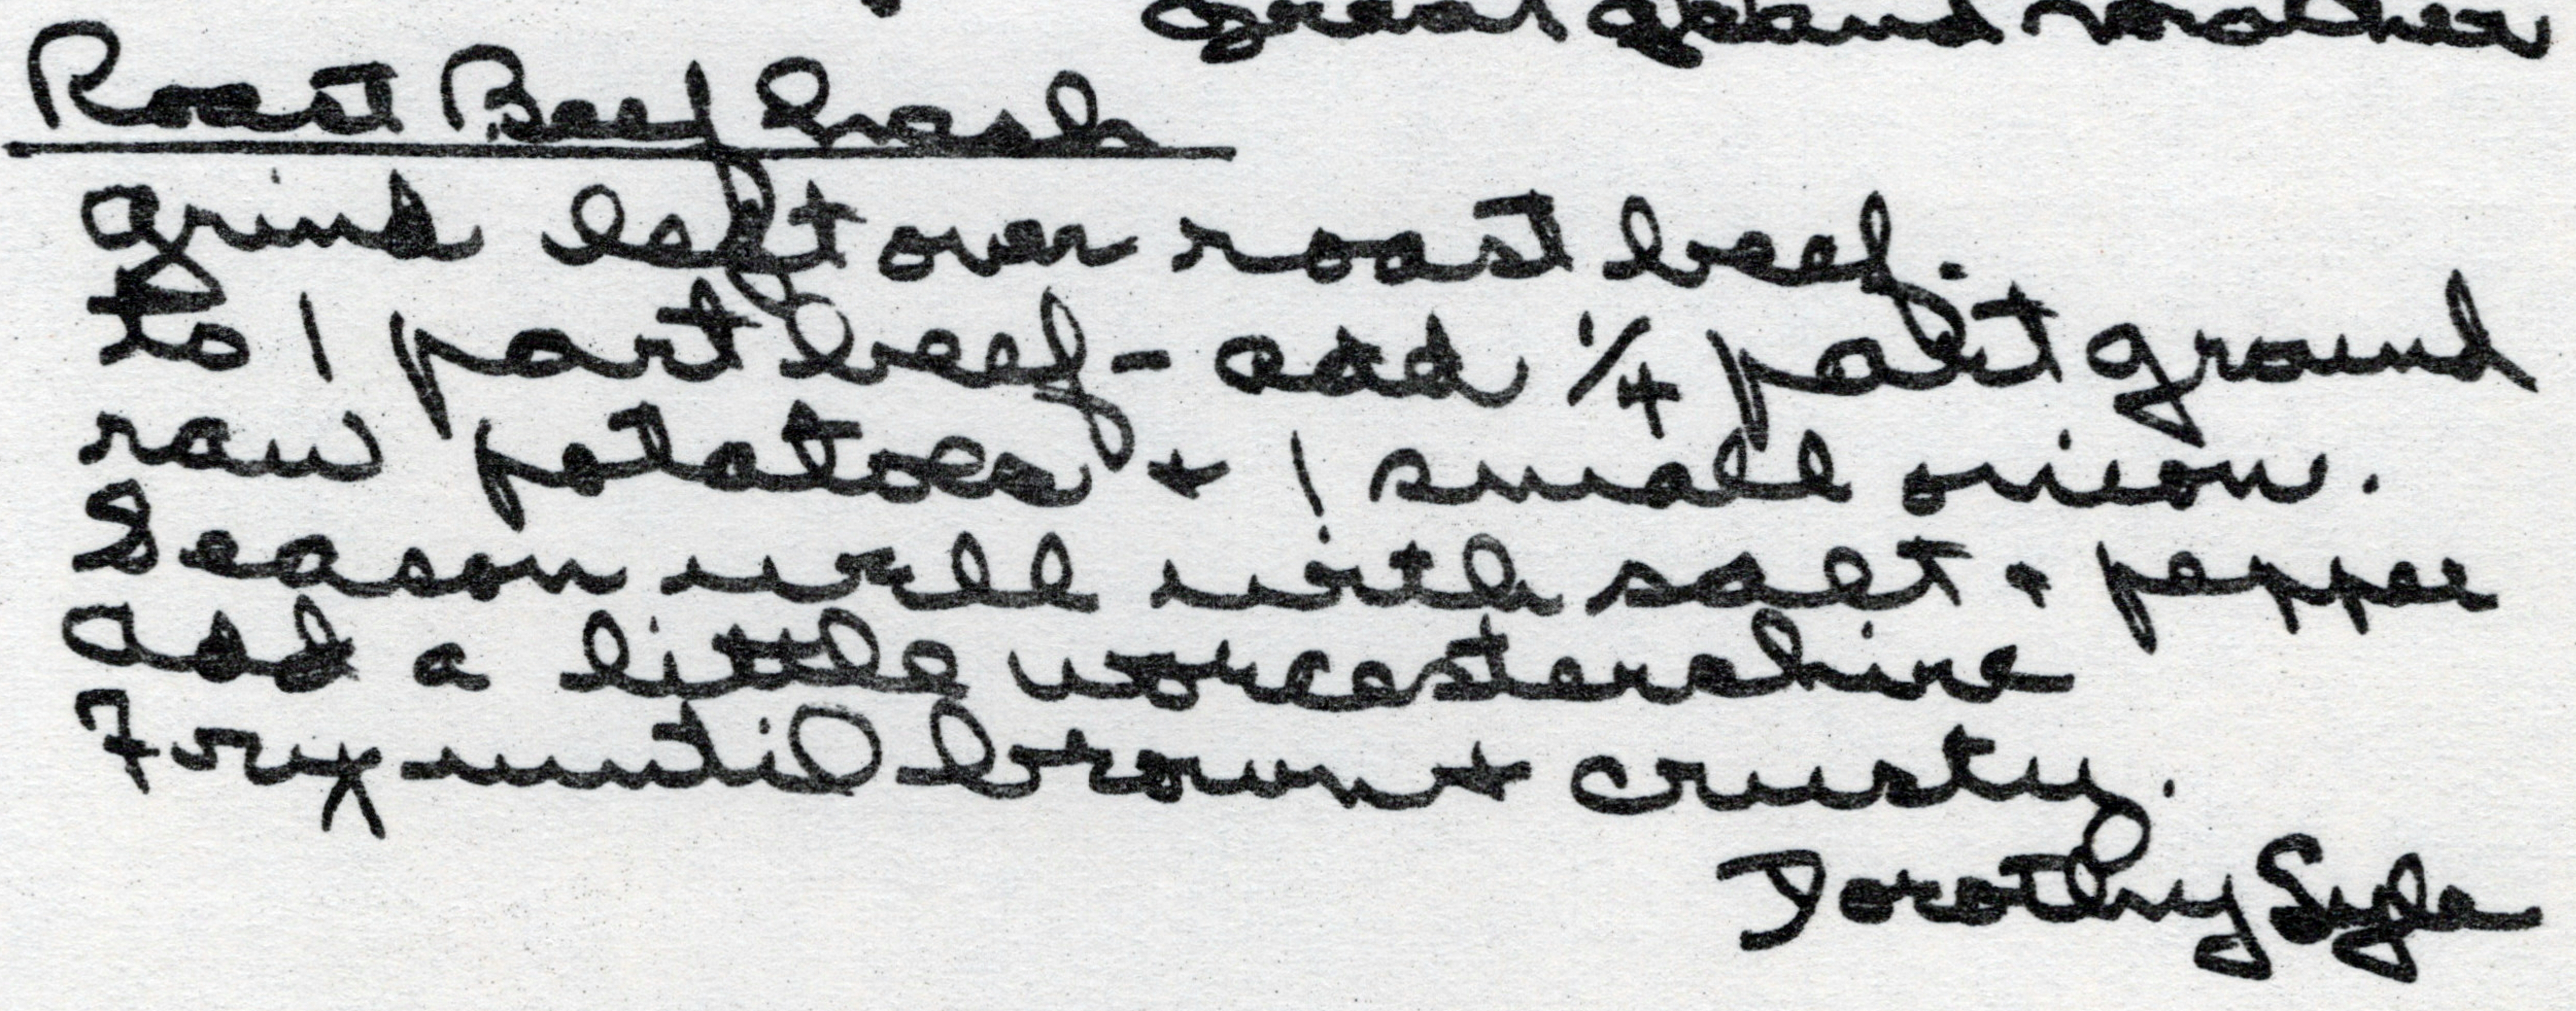 great grand mother
Roast Beef Hash
Grind left over roast beef.
To 1 part beef - add 1/4 part ground
raw potatoes + 1 small onion.
Season well with salt + pepper
Add a little worcestershire
Fry until brown + crusty.
Dorothy